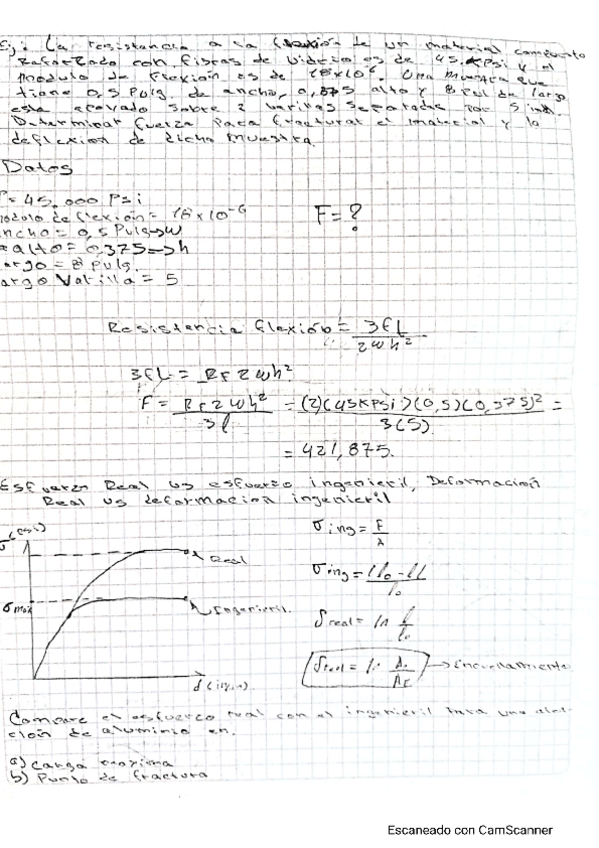 Ej: La resistencia a la flexión de un material compuesto
Reforzado con fibras de vidrio es de 45 KPsi y el
modulo de flexión es de 18x10⁶. Una muestra que
tiene 0,5 Pulg de ancho, 0,375 alto y 8 Pul de largo
esta apoyado sobre 2 varillas separadas por 5 in.
Determinar fuerza para fracturar el material y la
deflexion de dicha muestra.
Datos
= 45.000 Psi
modulo de flexion = 18x10⁻⁶
F = ?
ancho = 0,5 Pulg → w
alto = 0,375 → h
Largo = 8 Pulg.
Largo Varilla = 5
Resistencia flexión = 3FL / 2wh²
3FL = RF 2wh²
F = RF 2wh² / 3l = (2)(45KPSi)(0,5)(0,375)² / 3(5) =
= 421,875.
Esfuerzo Real vs esfuerzo ingenieril, Deformación
Real vs deformacion ingenieril
σ ing = F / A
Real
σ ing =
σ max
Ingenieril.
δ real = ln l / lo
δ real = ln / → Encuellamiento
Compare el esfuerzo real con el ingenieril Para una
ción de aluminio en.
a) Carga maxima
b) Punto de fractura
Escaneado con CamScanner